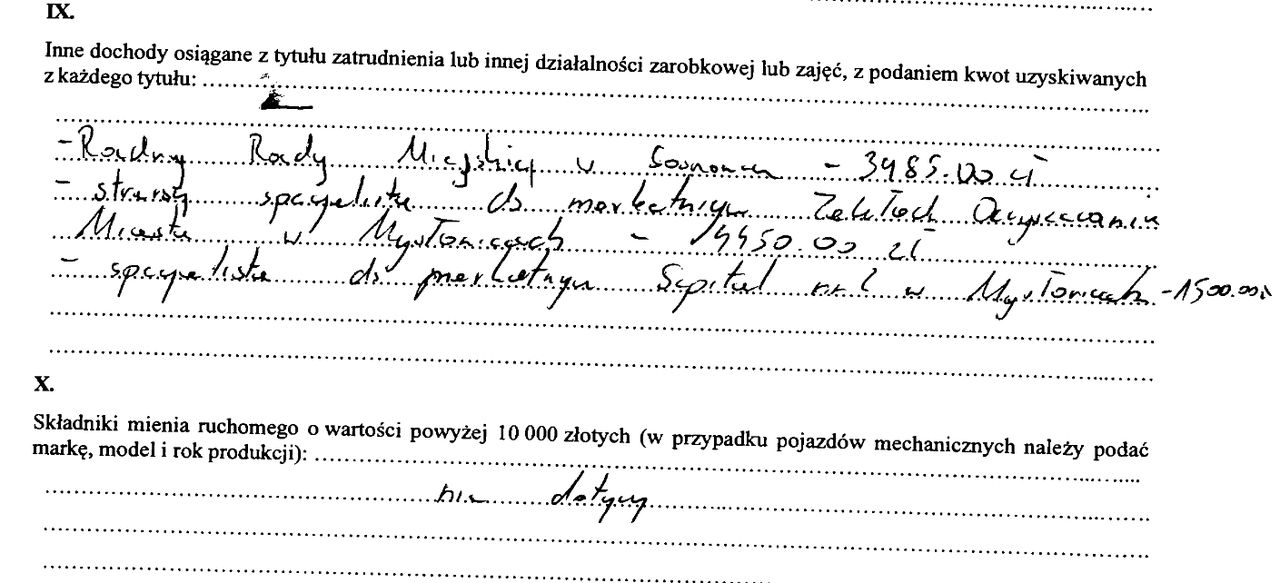 IX.
Inne dochody osiągane z tytułu zatrudnienia lub innej działalności zarobkowej lub zajęć, z podaniem kwot uzyskiwanych
z każdego tytułu:
- Radny Rady Miejskiej w Sosnowcu - 3985.00 zł
- starszy specjalista ds marketingu Zakładach Oczyszczania
Miasta w Mysłowicach - 14450.00 zł
- specjalista ds marketingu Szpital nr 2 w Mysłowicach - 1500.00 zł
X.
Składniki mienia ruchomego o wartości powyżej 10 000 złotych (w przypadku pojazdów mechanicznych należy podać
markę, model i rok produkcji):
nie dotyczy